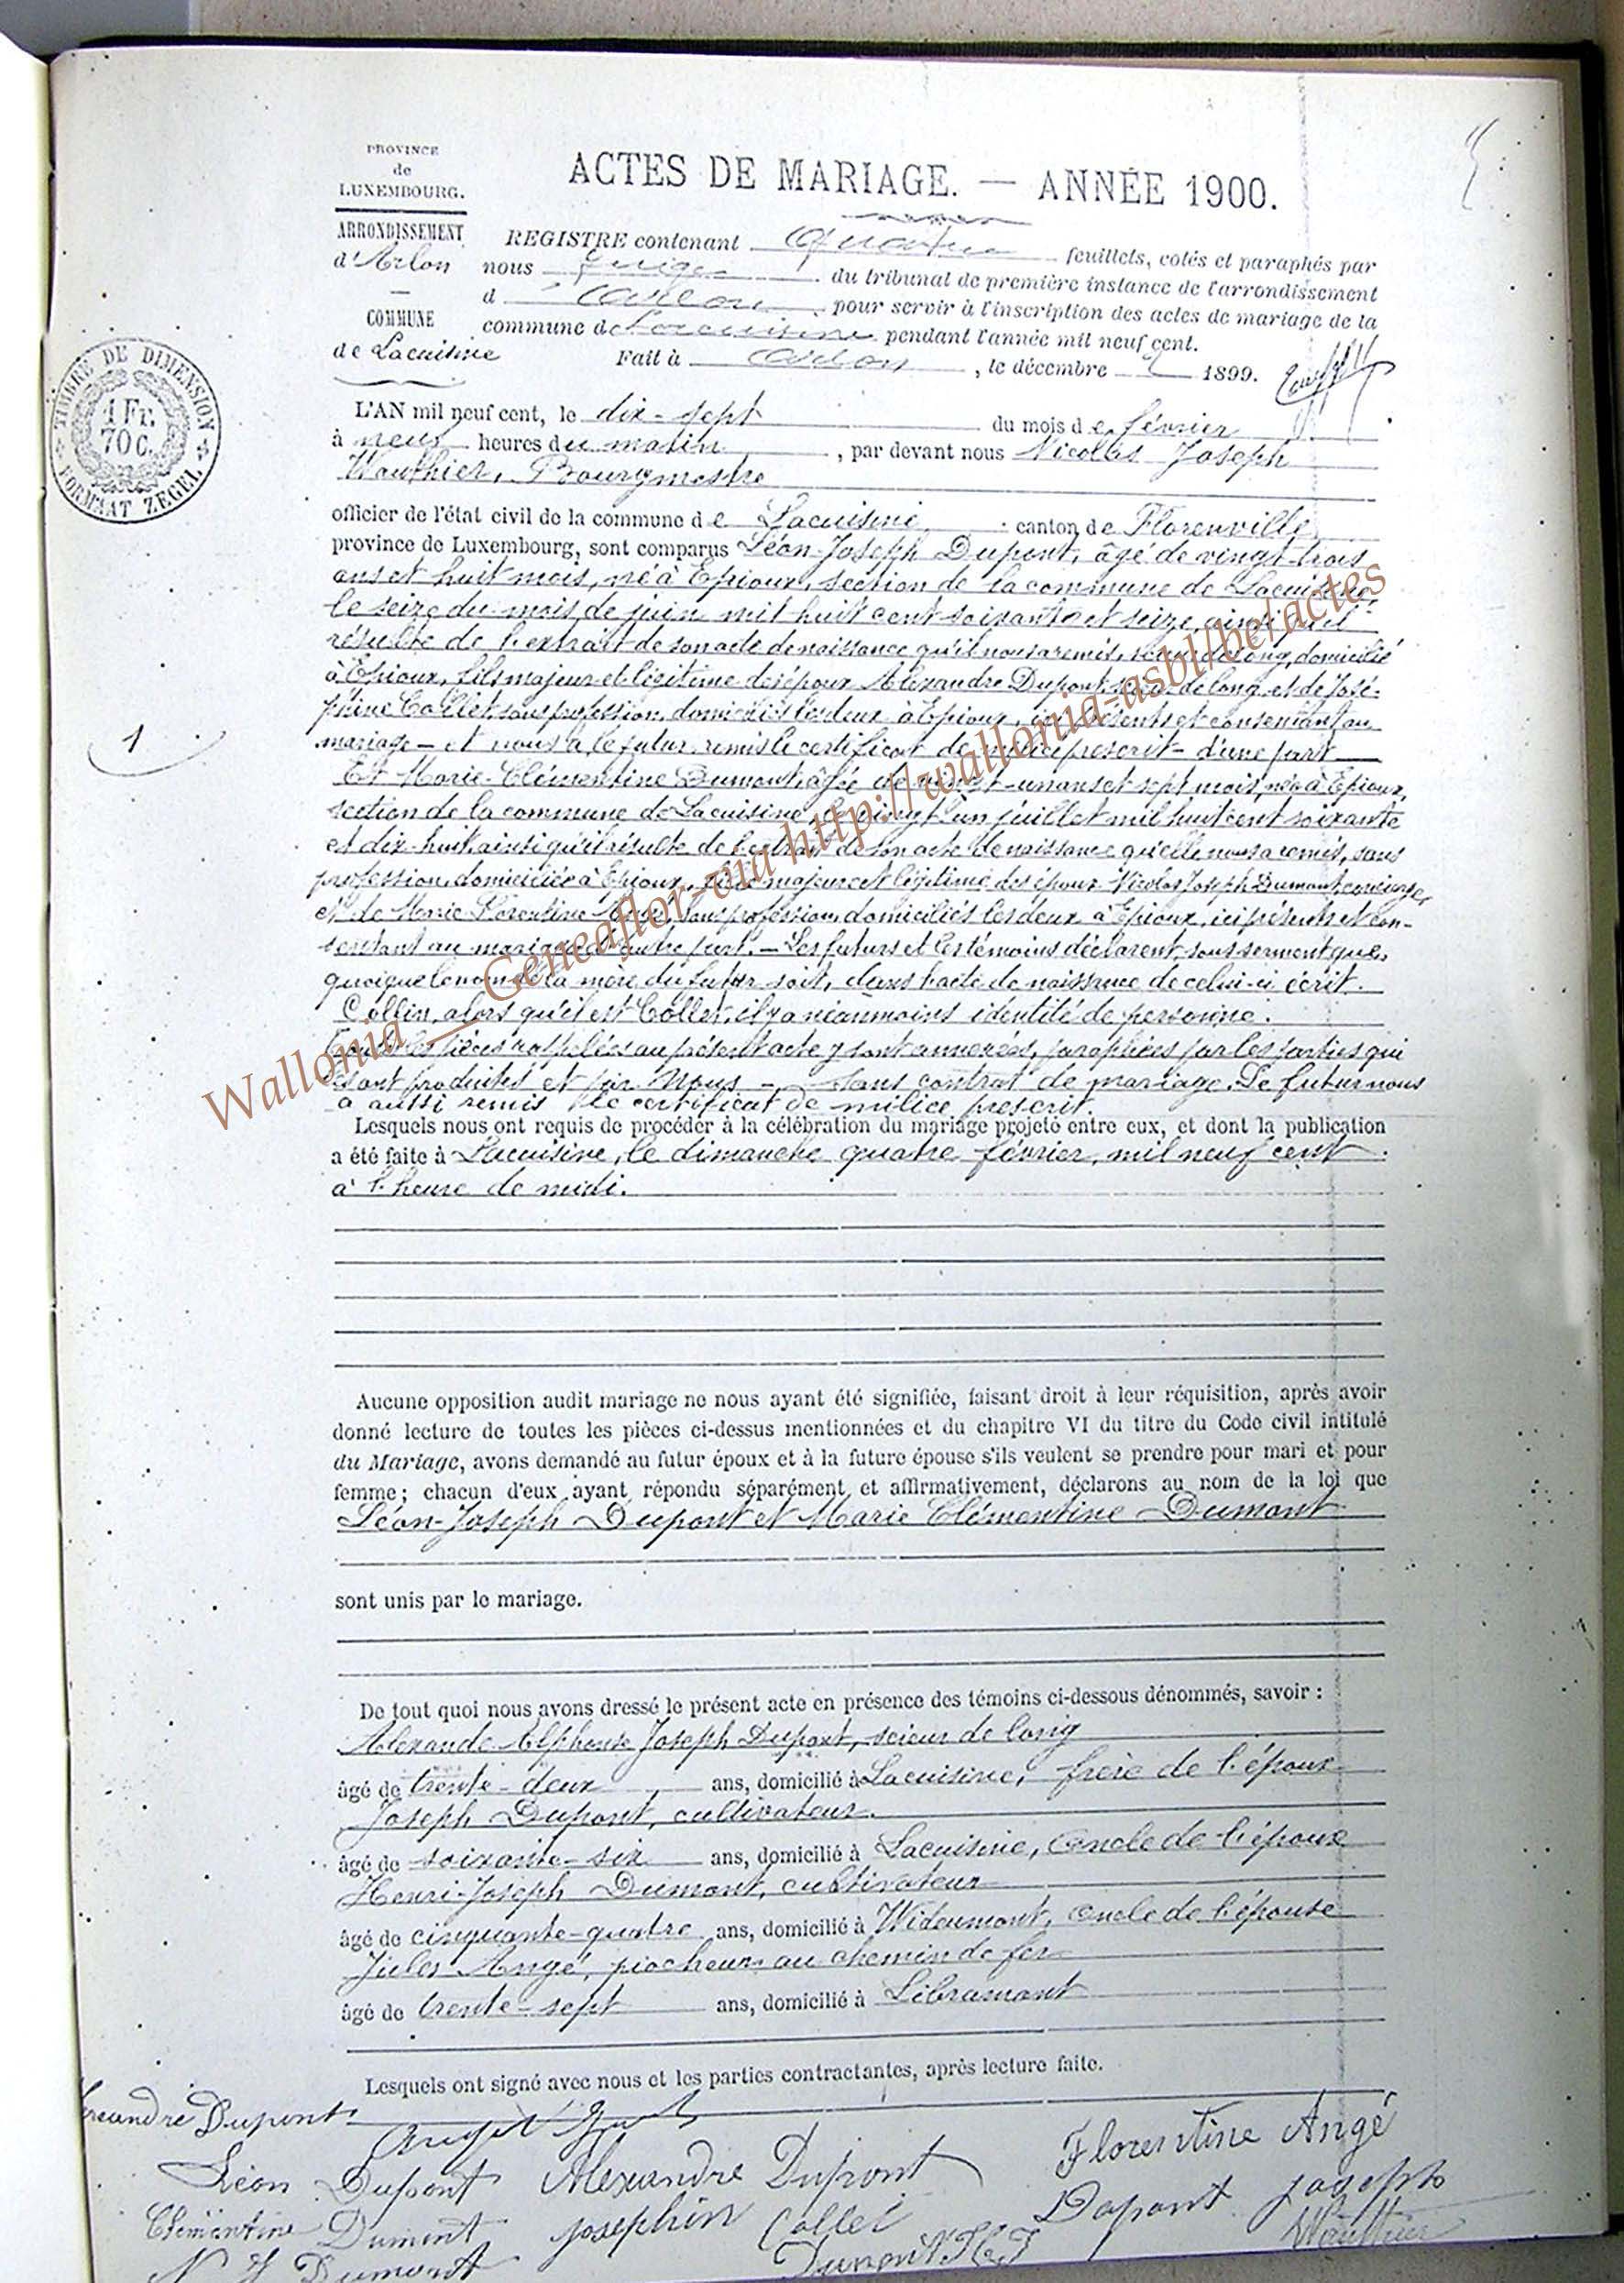 PROVINCE
de
LUXEMBOURG.
ARRONDISSEMENT
d'Arlon
—
COMMUNE
de Lacuisine
ACTES DE MARIAGE. — ANNÉE 1900.
REGISTRE contenant Quatre feuillets, cotés et paraphés par
nous Juge du tribunal de première instance de l'arrondissement
d'Arlon pour servir à l'inscription des actes de mariage de la
commune de Lacuisine pendant l'année mil neuf cent.
Fait à Arlon, le décembre 1899.
TIMBRE DE DIMENSION
1 Fr.
70 C.
FORMAAT ZEGEL
L'AN mil neuf cent, le dix-sept du mois de février
à neuf heures du matin, par devant nous Nicolas Joseph
Wauthier, Bourgmestre
officier de l'état civil de la commune de Lacuisine, canton de Florenville,
province de Luxembourg, sont comparus Léon-Joseph Dupont, âgé de vingt-trois
ans et huit mois, né à Epioux, section de la commune de Lacuisine,
le seize du mois de juin mil huit cent soixante et seize, ainsi qu'il
résulte de l'extrait de son acte de naissance qu'il nous a remis, scieur de long, domicilié
à Epioux, fils majeur et légitime des époux Alexandre Dupont, scieur de long et de José-
phine Collet, sans profession, domiciliés les deux à Epioux, ici présents et consentant au
mariage — et nous a, le futur, remis le certificat de milice prescrit — d'une part
1
Et Marie-Clémentine Dumont, âgée de vingt-un ans et sept mois, née à Epioux,
section de la commune de Lacuisine, le vingt-un juillet mil huit cent soixante
et dix-huit, ainsi qu'il résulte de l'extrait de son acte de naissance qu'elle nous a remis, sans
profession, domiciliée à Epioux, fille majeure et légitime des époux Nicolas Joseph Dumont, concierge,
et de Marie Florentine Angé, sans profession, domiciliés les deux à Epioux, ici présents et con-
sentant au mariage d'autre part. — Les futurs et les témoins déclarent sous serment que,
quoique le nom de la mère du futur soit, dans l'acte de naissance de celui-ci écrit
Collin, alors qu'il est Collet, il y a néanmoins identité de personne.
Toutes les pièces rappelées au présent acte y sont annexées, paraphées par les parties qui
les ont produites et par Nous — sans contrat de mariage. Le futur nous
a aussi remis le certificat de milice prescrit.
Lesquels nous ont requis de procéder à la célébration du mariage projeté entre eux, et dont la publication
a été faite à Lacuisine, le dimanche quatre février, mil neuf cent
à l'heure de midi.
Aucune opposition audit mariage ne nous ayant été signifiée, faisant droit à leur réquisition, après avoir
donné lecture de toutes les pièces ci-dessus mentionnées et du chapitre VI du titre du Code civil intitulé
du Mariage, avons demandé au futur époux et à la future épouse s'ils veulent se prendre pour mari et pour
femme; chacun d'eux ayant répondu séparément et affirmativement, déclarons au nom de la loi que
Léon-Joseph Dupont et Marie Clémentine Dumont
sont unis par le mariage.
De tout quoi nous avons dressé le présent acte en présence des témoins ci-dessous dénommés, savoir :
Alexandre Alphonse Joseph Dupont, scieur de long
âgé de trente-deux ans, domicilié à Lacuisine, frère de l'époux
Joseph Dupont, cultivateur.
âgé de soixante-six ans, domicilié à Lacuisine, oncle de l'époux
Henri-Joseph Dumont, cultivateur
âgé de cinquante-quatre ans, domicilié à Wideumont, oncle de l'épouse
Jules Angé, piocheur au chemin de fer
âgé de trente-sept ans, domicilié à Libramont
Lesquels ont signé avec nous et les parties contractantes, après lecture faite.
Alexandre Dupont
Florentine Angé
Léon Dupont Alexandre Dupont
Dupont Joseph
Clémentine Dumont Josephin Collet
Wauthier
N J Dumont Dumont H J
Wallonia __ Geneaflor via http://wallonia-asbl/be/actes